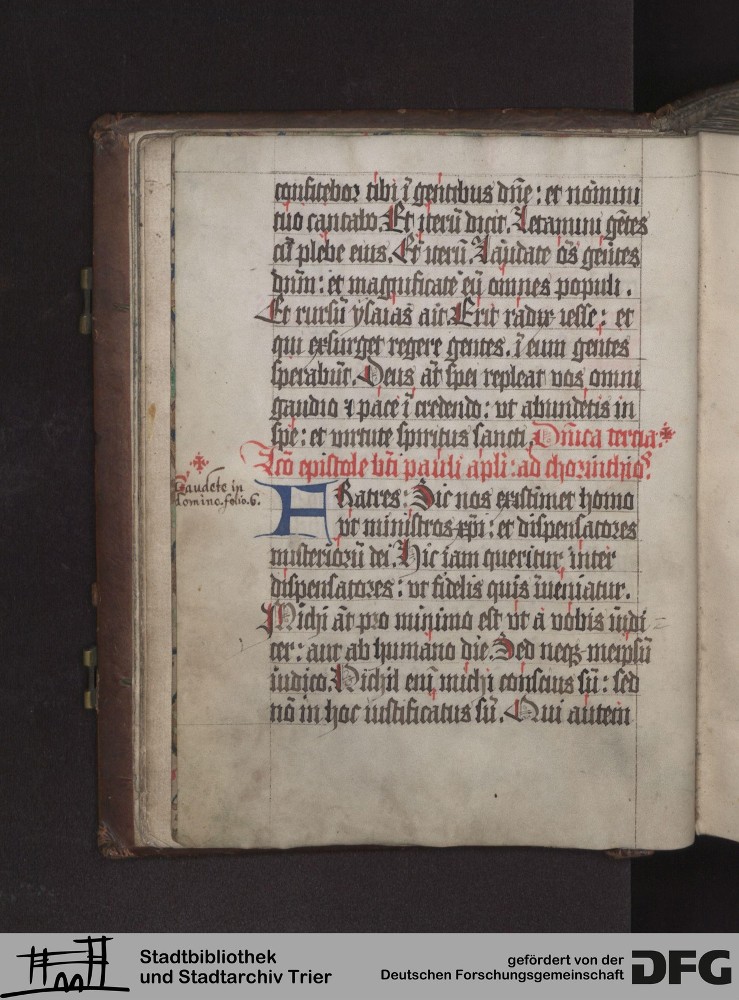 confitebor tibi ī gentibus dn̄e : et nōmini
tuo cantabo. Et iterū dicit. Letamini gētes
cū plebe eius. Et iterū. Laudate ōs gentes
dnm̄ : et magnificate eū omnes populi .
Et rursū ysaias ait. Erit radix iesse : et
qui exsurget regere gentes . ī eum gentes
sperabūt. Deus aūt spei repleat vos omni
gaudio ⁊ pace ī credendo : vt abundetis in
spe : et virtute spiritus sancti. Dn̄ica tercia.
Lcō epistole bt̄i pauli apl̄i : ad chorinthios.
Gaudete in
domino. folio. 6.
FRatres : Sic nos existimet homo
vt ministros xp̄i : et dispensatores
misteriorū dei. Hic iam queritur inter
dispensatores : vt fidelis quis īueniatur.
Michi aūt pro minimo est vt a vobis iudi
cer : aut ab humano die. Sed neqꝫ meipsū
iudico. Nichil enī michi conscius sū : sed
nō in hoc iustificatus sū. Qui autem
Stadtbibliothek
und Stadtarchiv Trier
gefördert von der
Deutschen Forschungsgemeinschaft
DFG